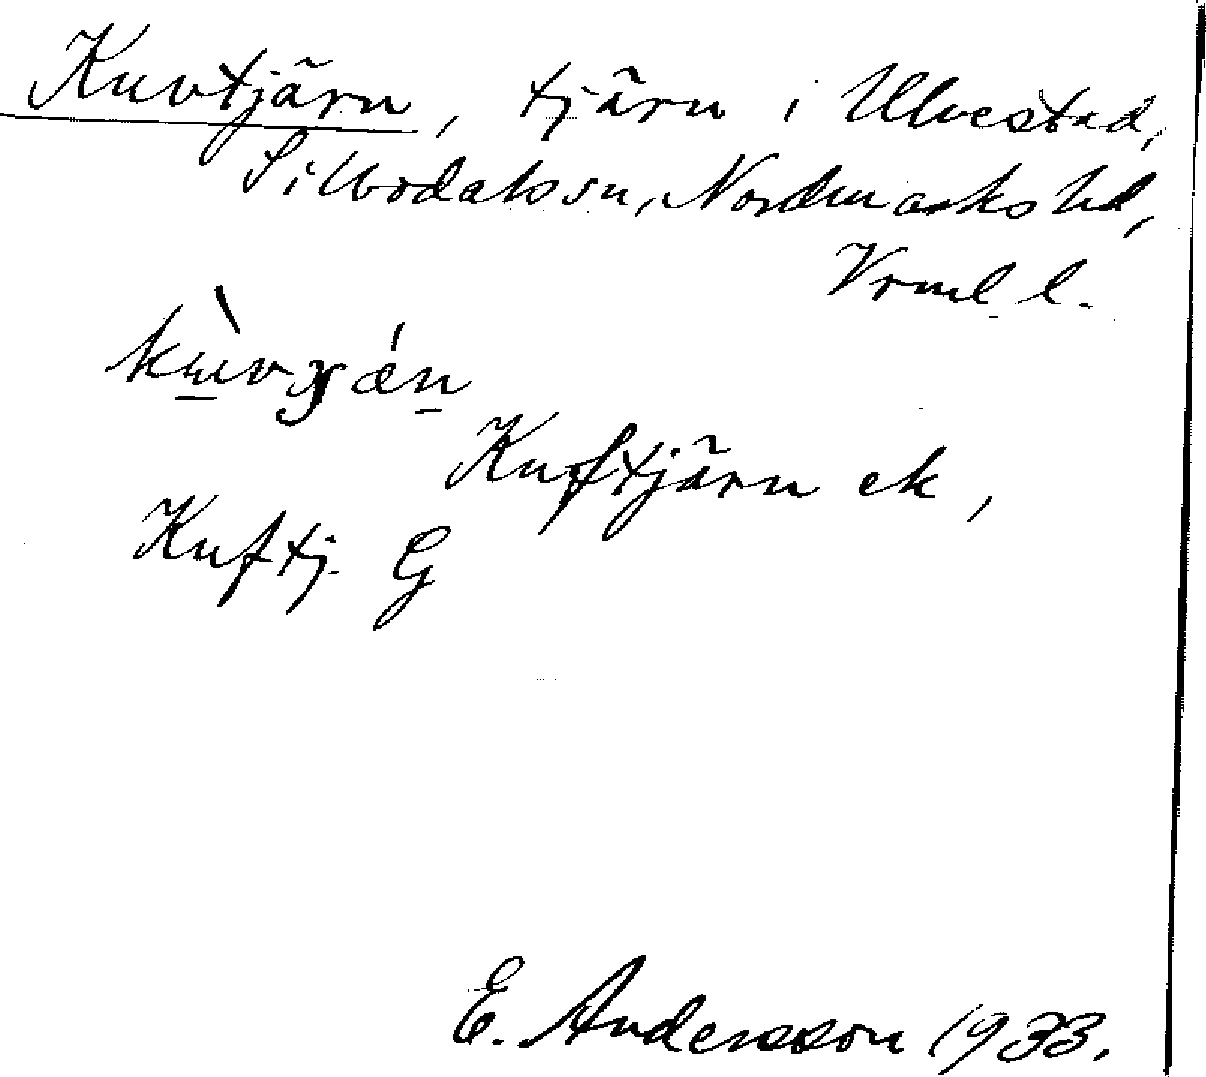 Kuvtjärn, tjärn i Ulvestad,
Silbodals sn, Nordmarks hd,
Vrml l.
Kuftjärn ek,
Kuftj. G
E. Andersson 1933.